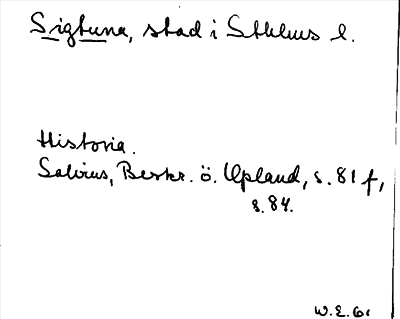 Sigtuna, stad i Sthlms l.
Historia.
Salvius, Beskr. ö. Upland, s. 81 f,
s. 84.
W.E. 61